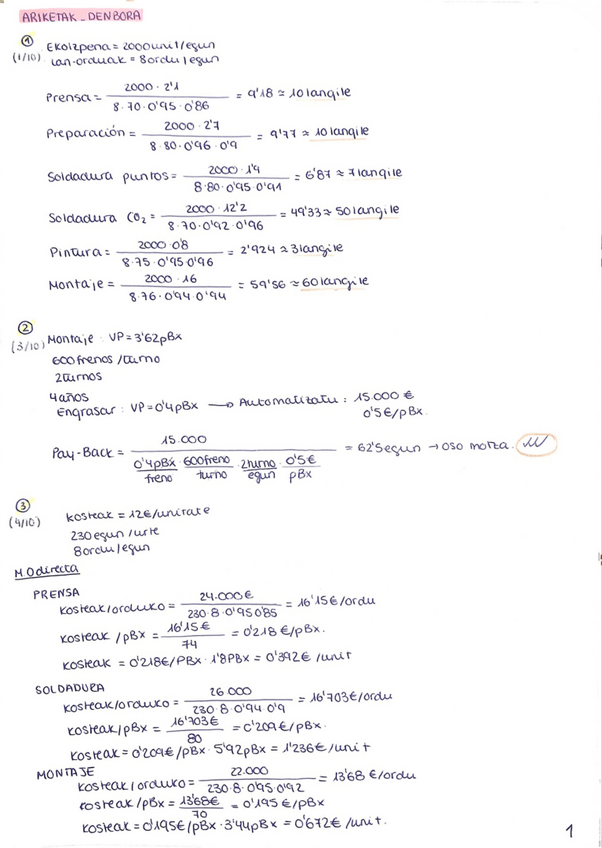 ARIKETAK_DENBORA
①
(1/10)
Ekoizpena = 2000unit/egun
Lan-orduak = 8ordu/egun
Prensa = 2000·2'1 / 8·70·0'95·0'86 = 9'18 ≈ 10langile
Preparación = 2000·2'7 / 8·80·0'96·0'9 = 9'77 ≈ 10langile
Soldadura puntos = 2000·1'9 / 8·80·0'95·0'91 = 6'87 ≈ 7langile
Soldadura CO₂ = 2000·12'2 / 8·70·0'92·0'96 = 49'33 ≈ 50langile
Pintura = 2000·0'8 / 8·75·0'95·0'96 = 2'924 ≈ 3langile
Montaje = 2000·16 / 8·76·0'94·0'94 = 59'56 ≈ 60langile
②
(3/10)
Montaje: VP=3'62pBx
600frenos/turno
2turnos
4años
Engrasar: VP=0'4pBx → Automatizatu: 15.000 €
0'5€/pBx.
Pay-Back = 15.000 / 0'4pBx/freno · 600freno/turno · 2turno/egun · 0'5€/pBx = 62'5egun → oso motza.
③
(4/10)
Kosteak = 12€/unitate
230egun/urte
8ordu/egun
M.O directa
PRENSA
Kosteak/orduko = 24.000€ / 230·8·0'95·0'85 = 16'15€/ordu
Kosteak/pBx = 16'15€ / 74 = 0'218€/pBx.
Kosteak = 0'218€/PBx·1'8PBx = 0'392€/unit
SOLDADURA
Kosteak/orduko = 26.000 / 230·8·0'94·0'9 = 16'703€/ordu
Kosteak/pBx = 16'703€ / 80 = 0'209€/pBx.
Kosteak = 0'209€/pBx·5'92pBx = 1'236€/unit
MONTAJE
Kosteak/orduko = 22.000 / 230·8·0'95·0'92 = 13'68€/ordu
Kosteak/pBx = 13'68€ / 70 = 0'195€/pBx
Kosteak = 0'195€/pBx·3'44pBx = 0'672€/unit.
1